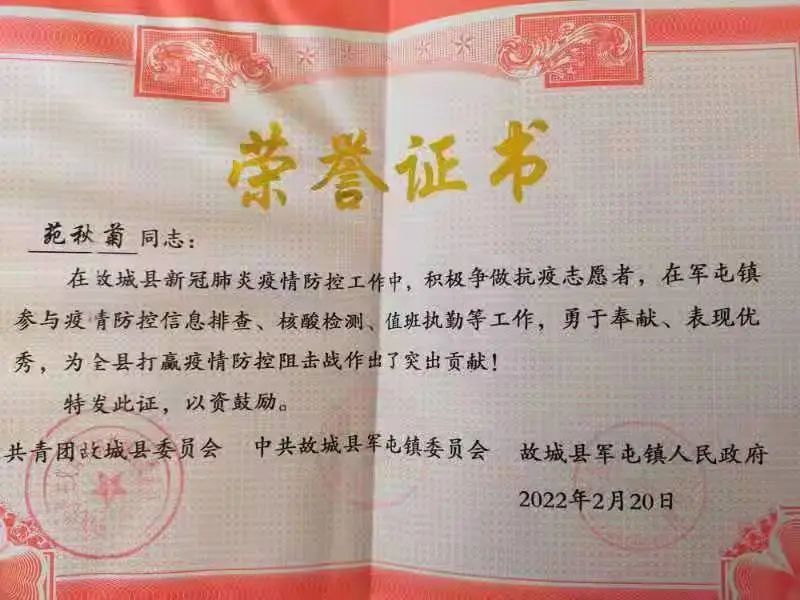 荣誉证书
苑秋菊同志：
在故城县新冠肺炎疫情防控工作中，积极争做抗疫志愿者，在军屯镇
参与疫情防控信息排查、核酸检测、值班执勤等工作，勇于奉献、表现优
秀，为全县打赢疫情防控阻击战作出了突出贡献！
特发此证，以资鼓励。
共青团故城县委员会 中共故城县军屯镇委员会 故城县军屯镇人民政府
2022年2月20日